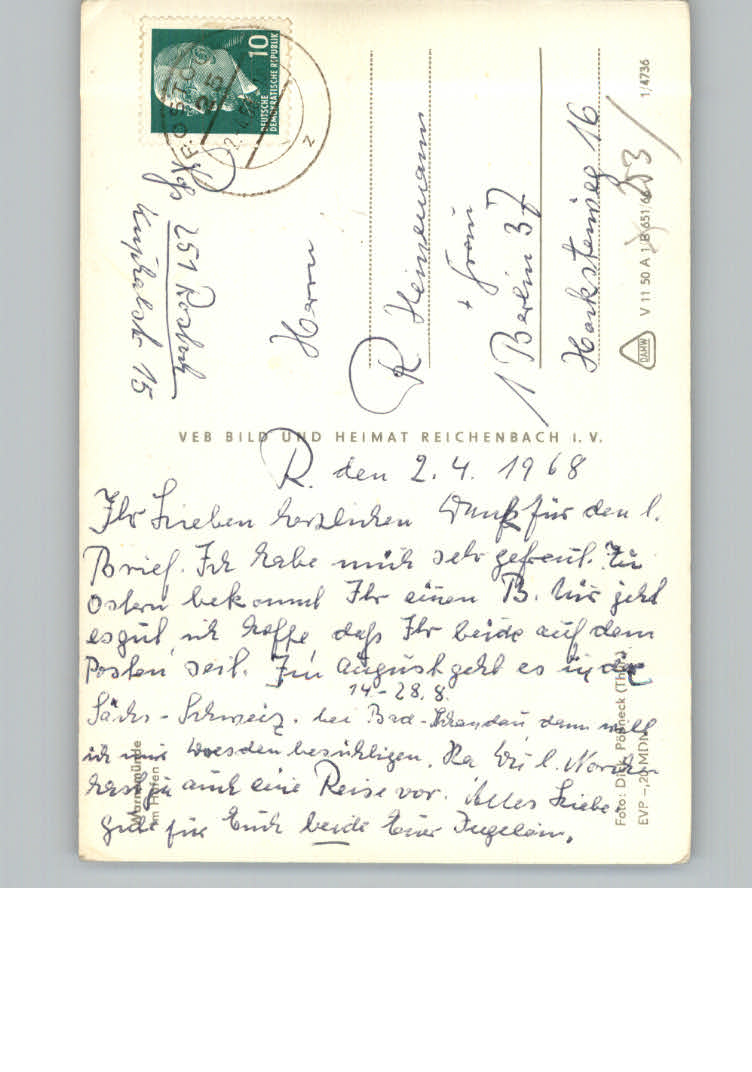 DEUTSCHE
DEMOKRATISCHE REPUBLIK
10
ROSTOCK
25
Z
251 Rostock
15
Herrn
R Heinemann
+ Frau
1 Berlin 37
16
V 11 50 A 1/B 651/66
1/4736
DAMW
VEB BILD UND HEIMAT REICHENBACH I. V.
R. den 2. 4. 1968
Ihr Lieben herzlichen Dank für den l.
Brief. Ich habe mich sehr gefreut. Zu
Ostern bekommt Ihr einen B. Mir geht
es gut, ich hoffe daß Ihr beide auf dem
Posten seit. Im August geht es in die
14-28.8.
Sächs-Schweiz. bei Bad-Schandau dann will
ich mir Dresden besichtigen. Na Du l.
hast ja auch eine Reise vor. Alles Liebe
Gute für Euch beide Eure
Warnemünde
Im Hafen
Foto: Dick, Pößneck (Thür.)
EVP -,20 MDN